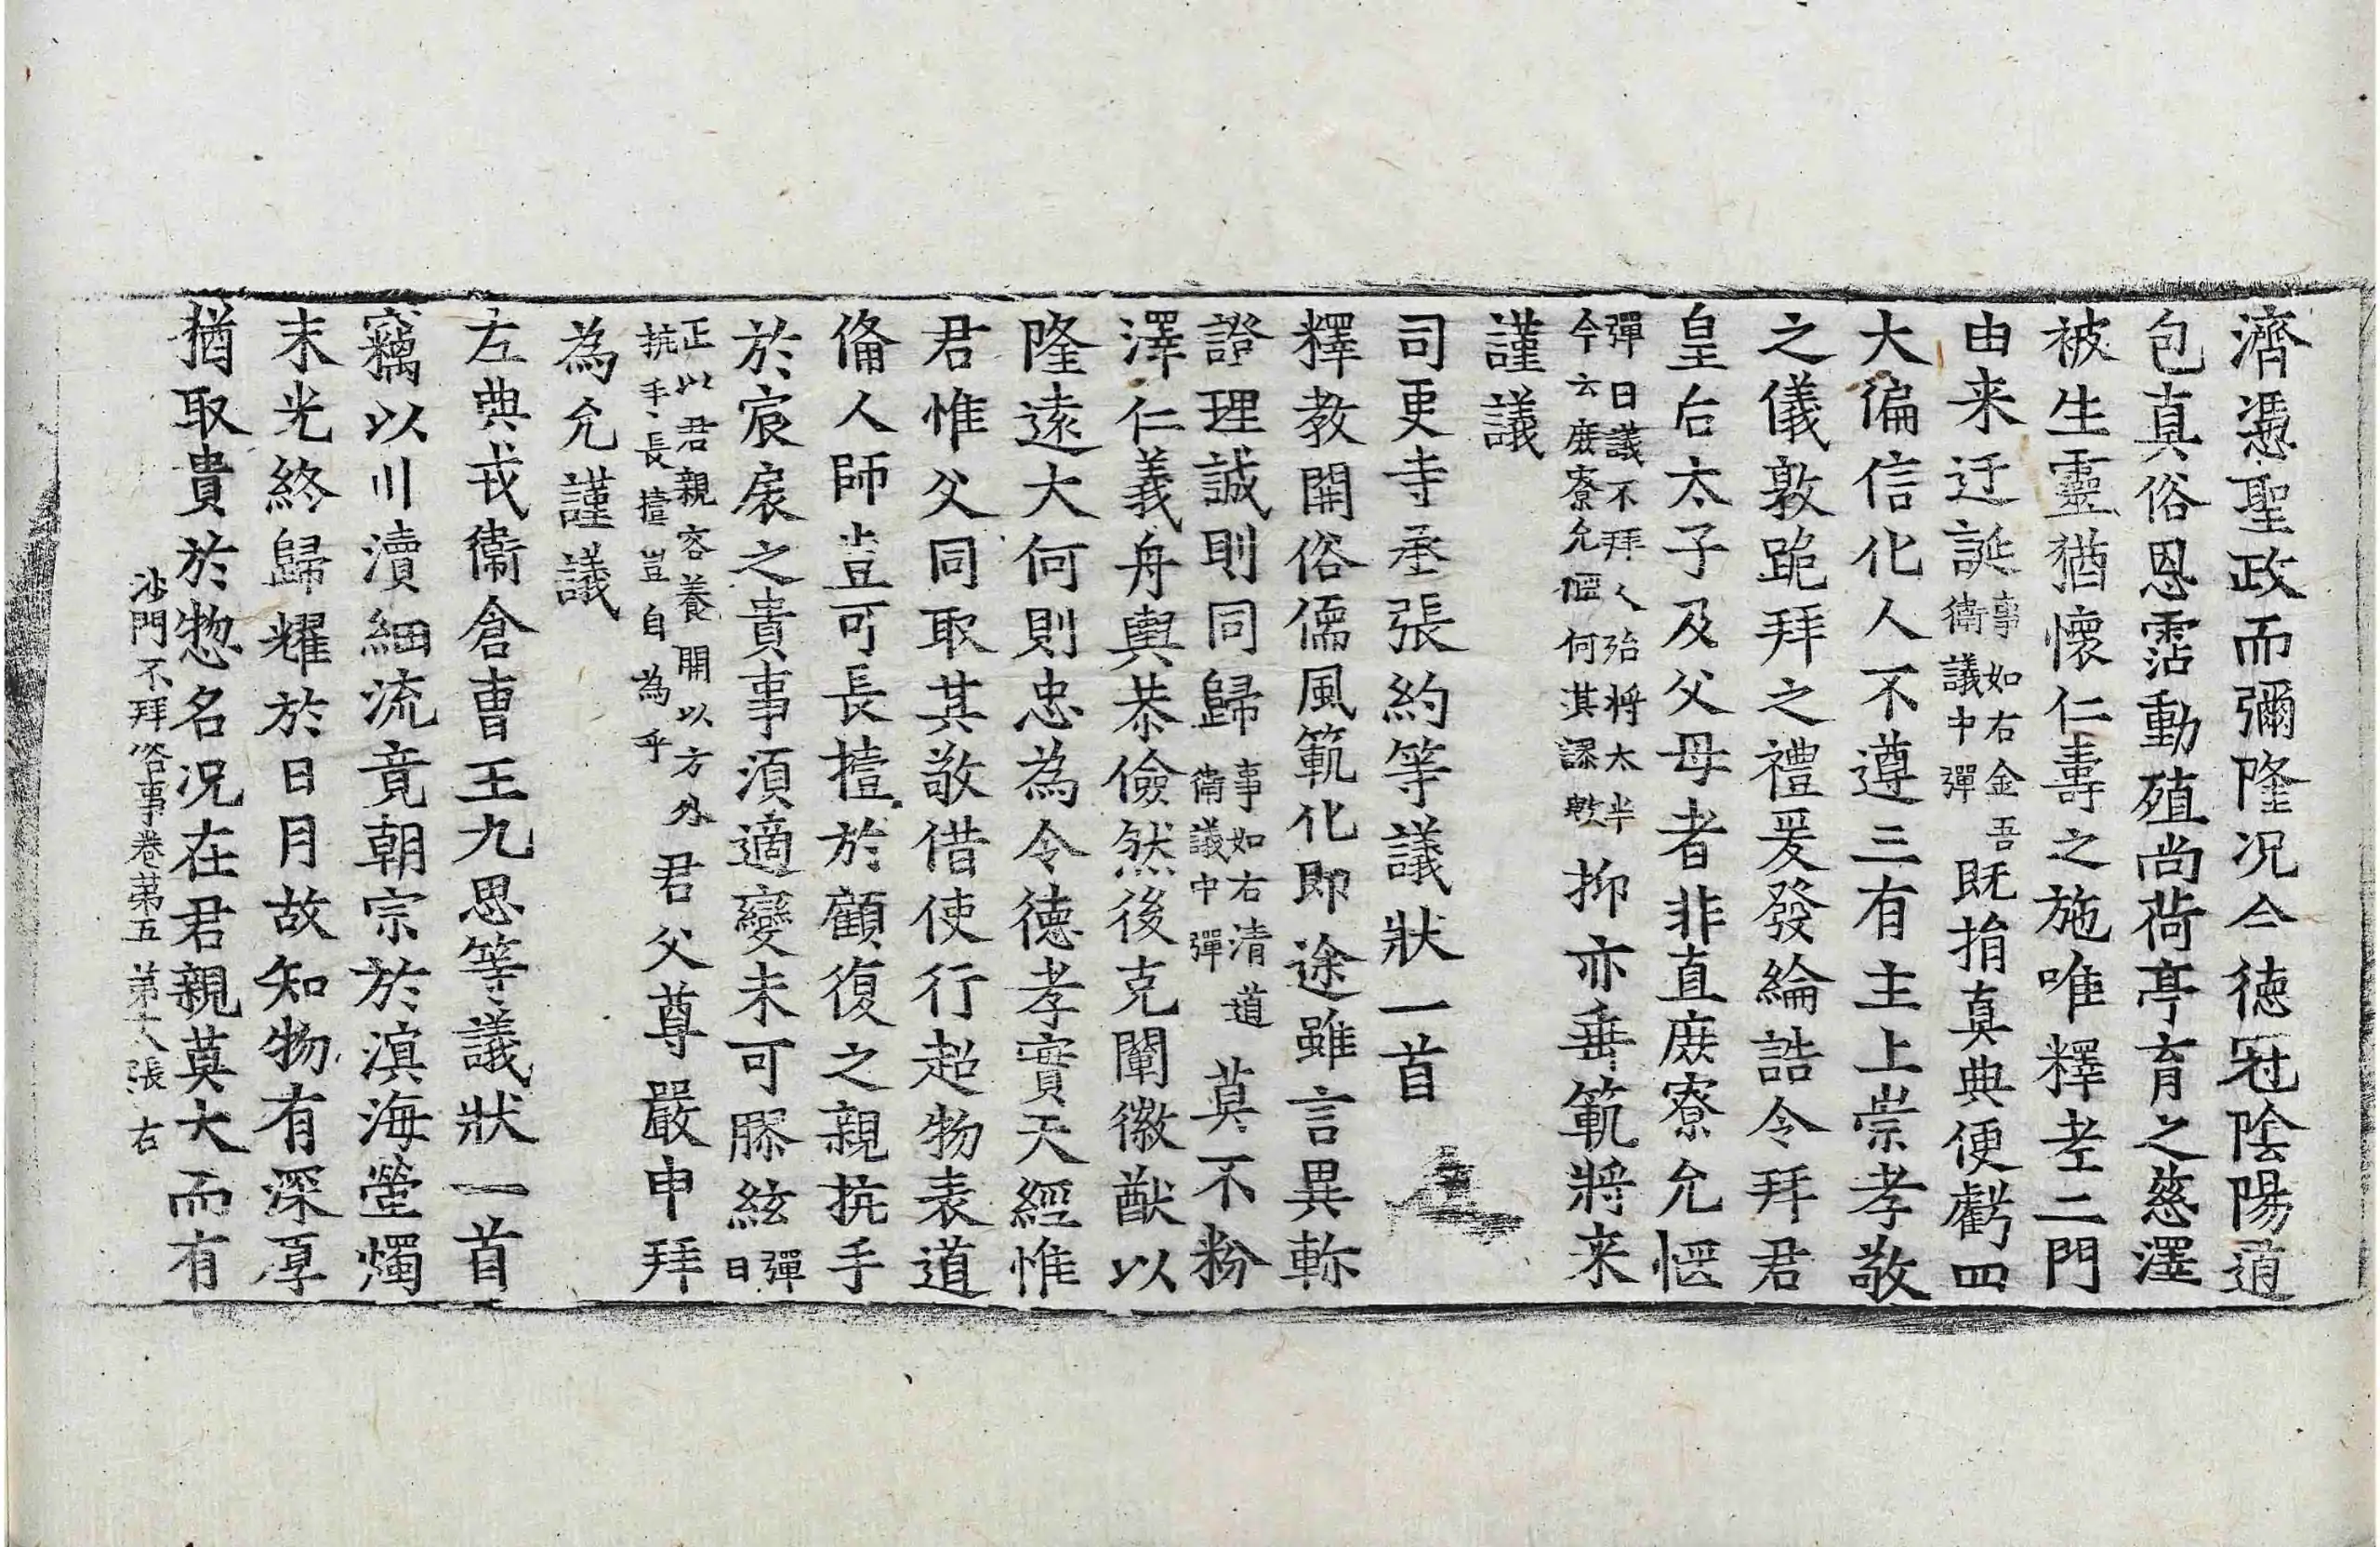 濟憑聖政而彌隆况今德冠陰陽道
包真俗恩霑動殖尚荷亭育之慈澤
被生靈猶懷仁壽之施唯釋老二門
由来迂誕事如右金吾衛議中彈既捐真典便虧四
大偏信化人不遵三有主上崇孝敬
之儀敦跪拜之禮爰發綸誥令拜君
皇后太子及父母者非直庶寮允愜
彈曰議不拜人殆將太半今云庶寮允愜何其謬歟抑亦垂範將来
謹議
司更寺丞張約等議狀一首
釋教開俗儒風範化即途雖言異軫
證理誠則同歸事如右清道衛議中彈莫不粉
澤仁義舟輿恭儉然後克闡徽猷以
隆遠大何則忠為令德孝實天經惟
君惟父同取其敬借使行超物表道
倫人師豈可長揖於顧復之親抗手
於宸扆之貴事湏適變未可膠絃彈曰
正以君親容養開以方外抗手長揖豈自為乎君父尊嚴申拜
為允謹議
左典戎衛倉曹王九思等議狀一首
竊以川瀆細流竟朝宗於溟海螢燭
末光終歸耀於日月故知物有深厚
猶取貴於惣名况在君親莫大而有
沙門不拜俗事卷第五 第十八張 右